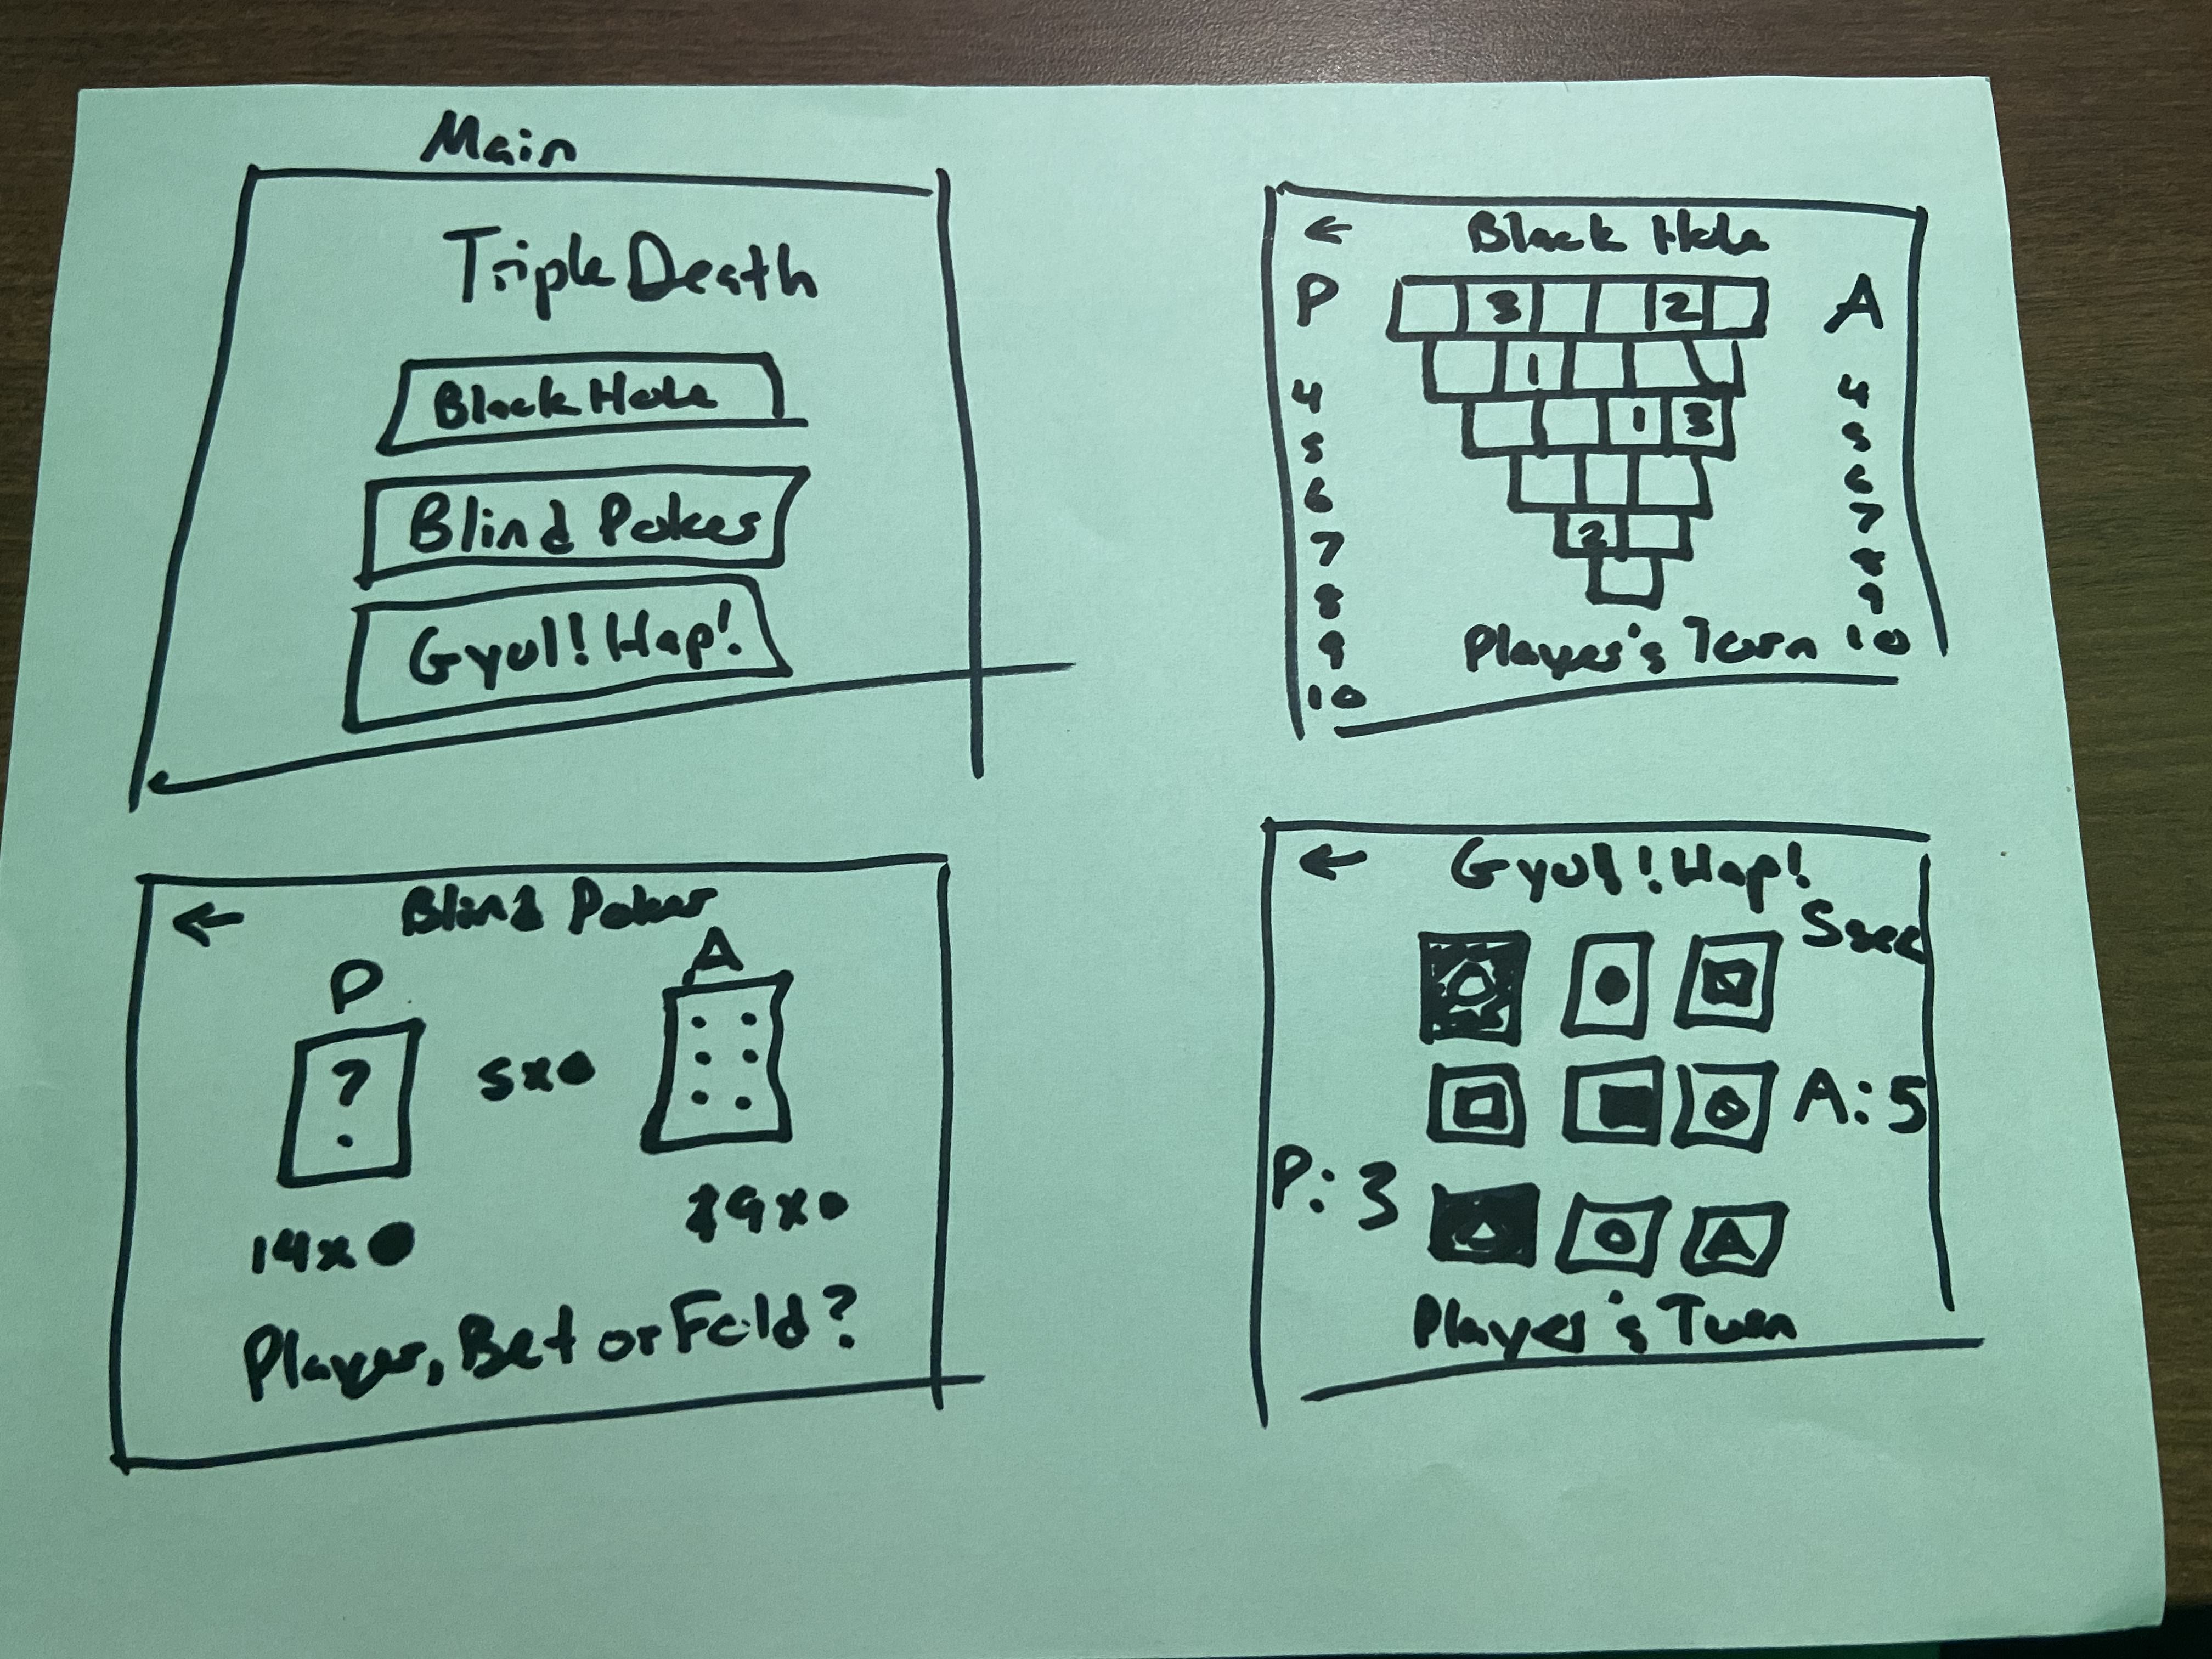 Main
Triple Death
Black Hole
Blind Poker
Gyul! Hap!
← Black Hole
P A
3 2
1
1 3
2
4
5
6
7
8
9
10
4
5
6
7
8
9
10
Player's Turn
← Blind Poker
P A
?
5x●
14x●
9x●
Player, Bet or Fold?
← Gyul! Hap!
5sec
A: 5
P: 3
Player's Turn